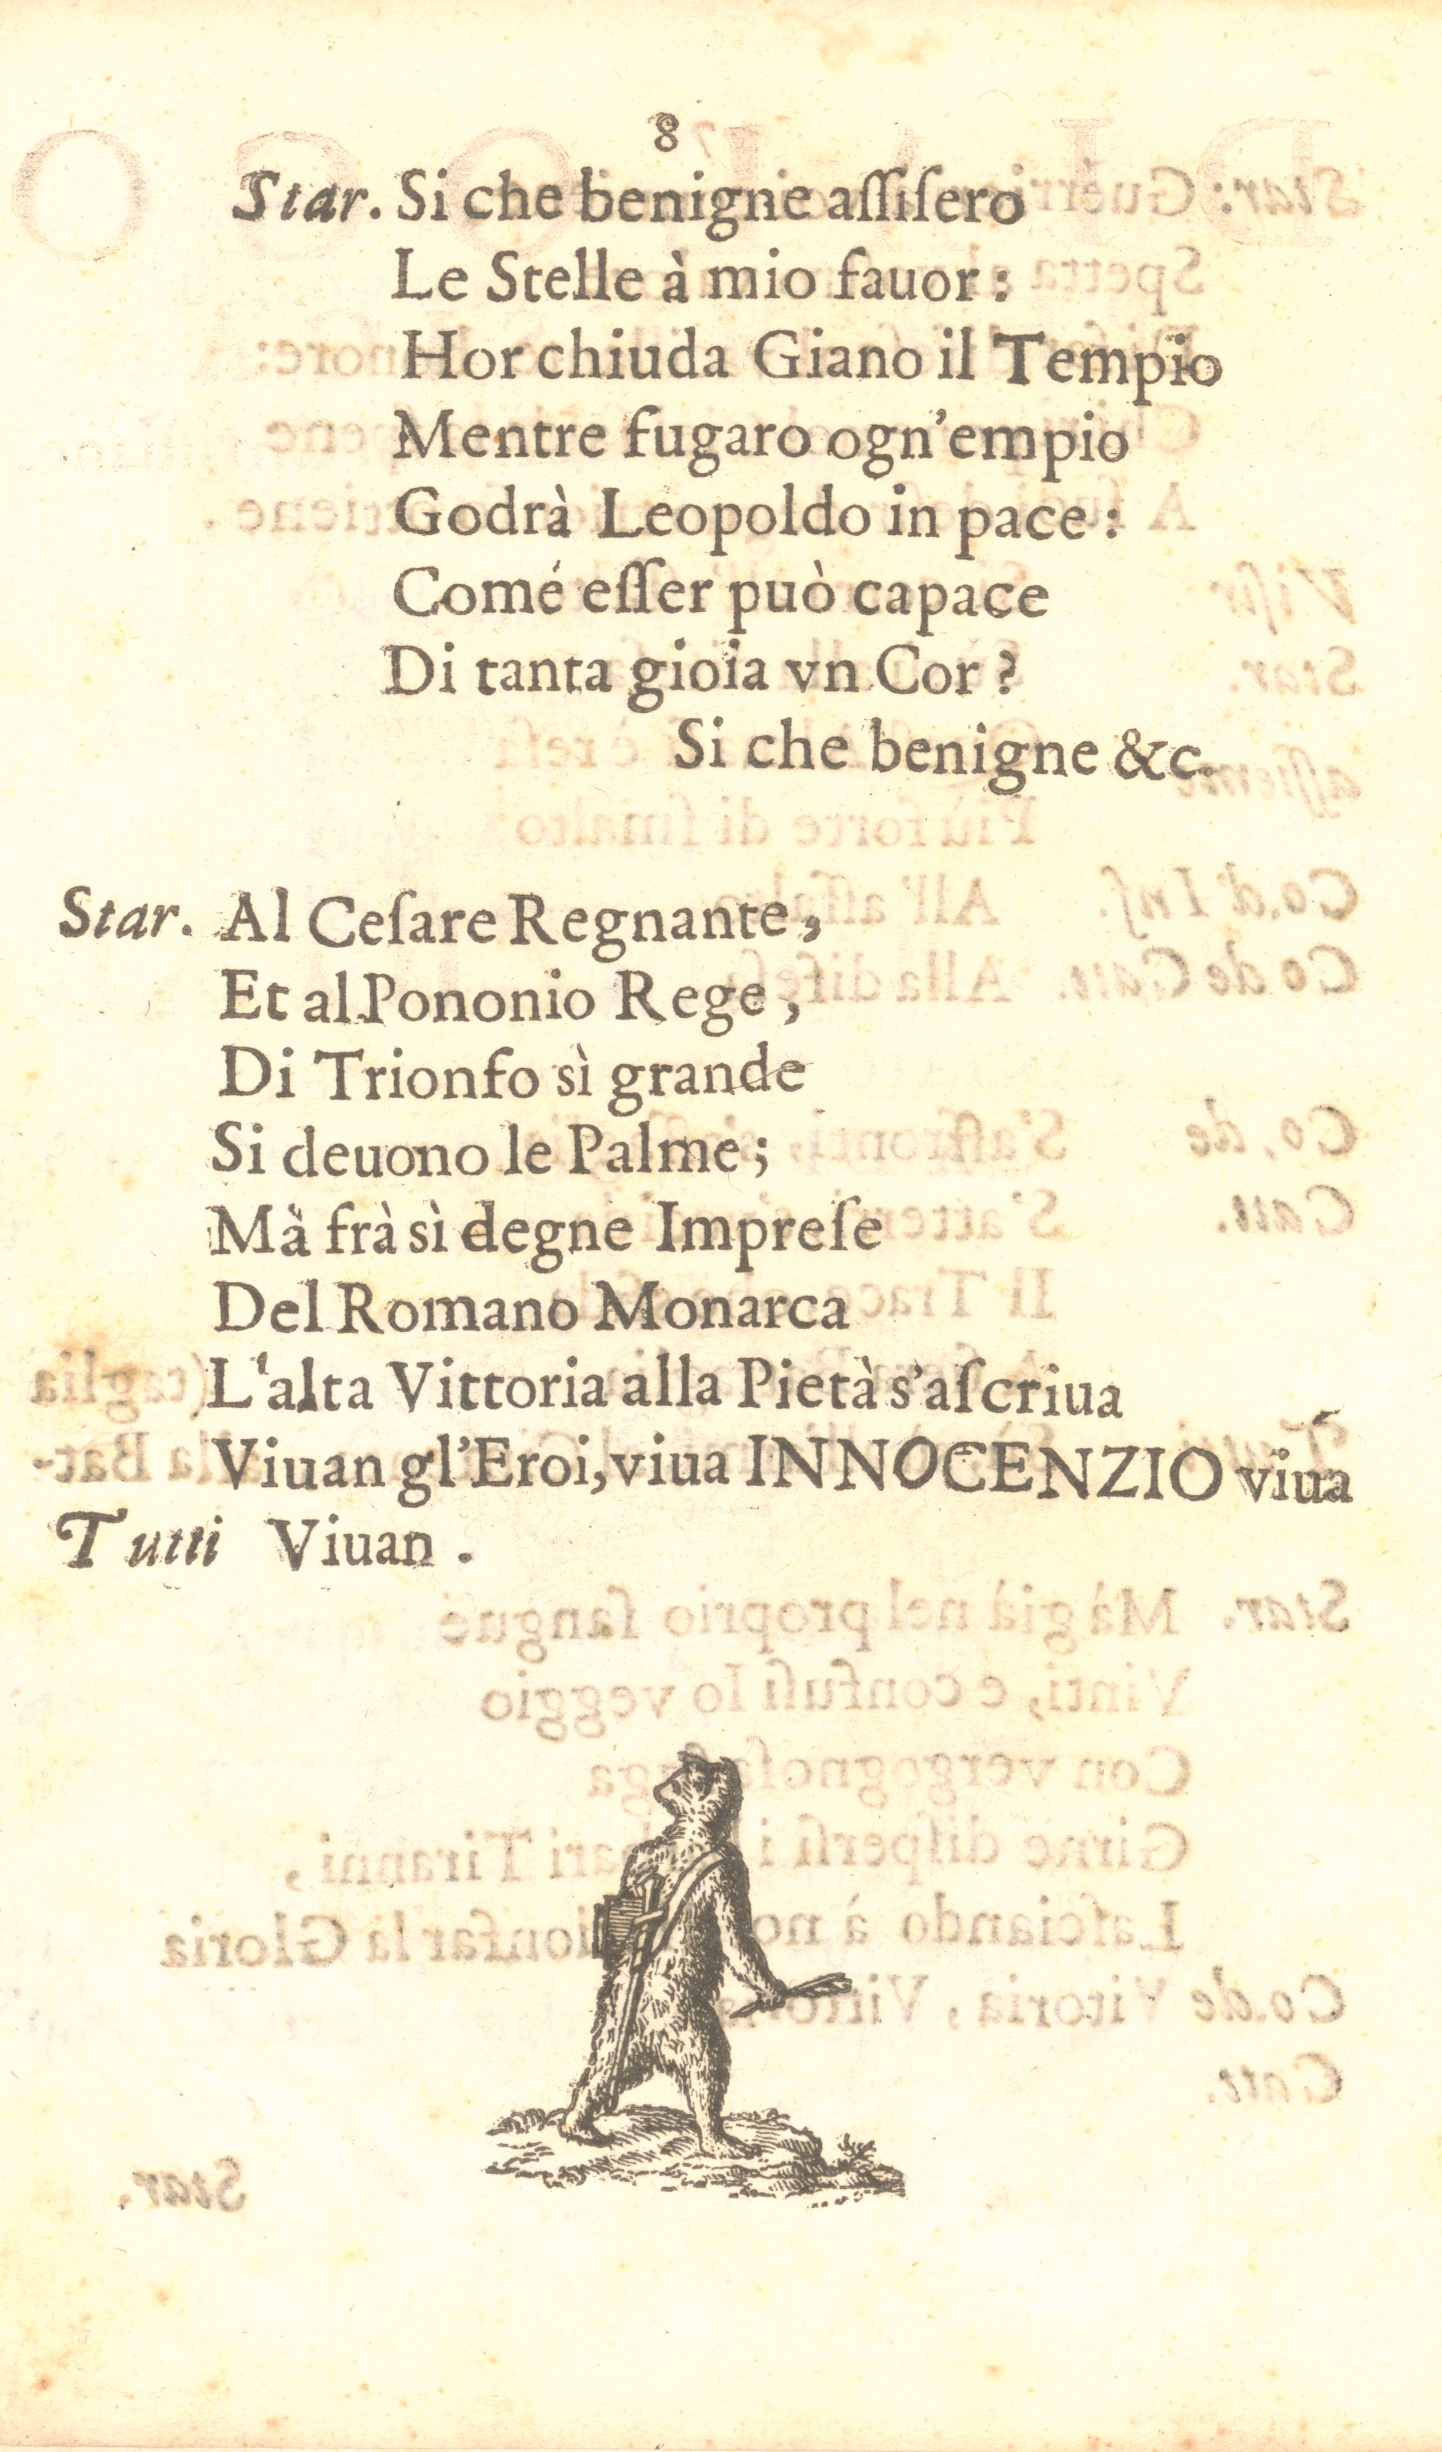 8
Star. Si che benigne aſſiſero
Le Stelle à mio fauor :
Hor chiuda Giano il Tempio
Mentre fugaro ogn'empio
Godrà Leopoldo in pace :
Comé eſſer può capace
Di tanta gioia vn Cor ?
Si che benigne &c.
Star. Al Ceſare Regnante,
Et al Pononio Rege,
Di Trionfo sì grande
Si deuono le Palme ;
Mà frà sì degne Impreſe
Del Romano Monarca
L'alta Vittoria alla Pietà s'aſcriua
Viuan gl'Eroi, viua INNOCENZIO viua
Tutti Viuan .